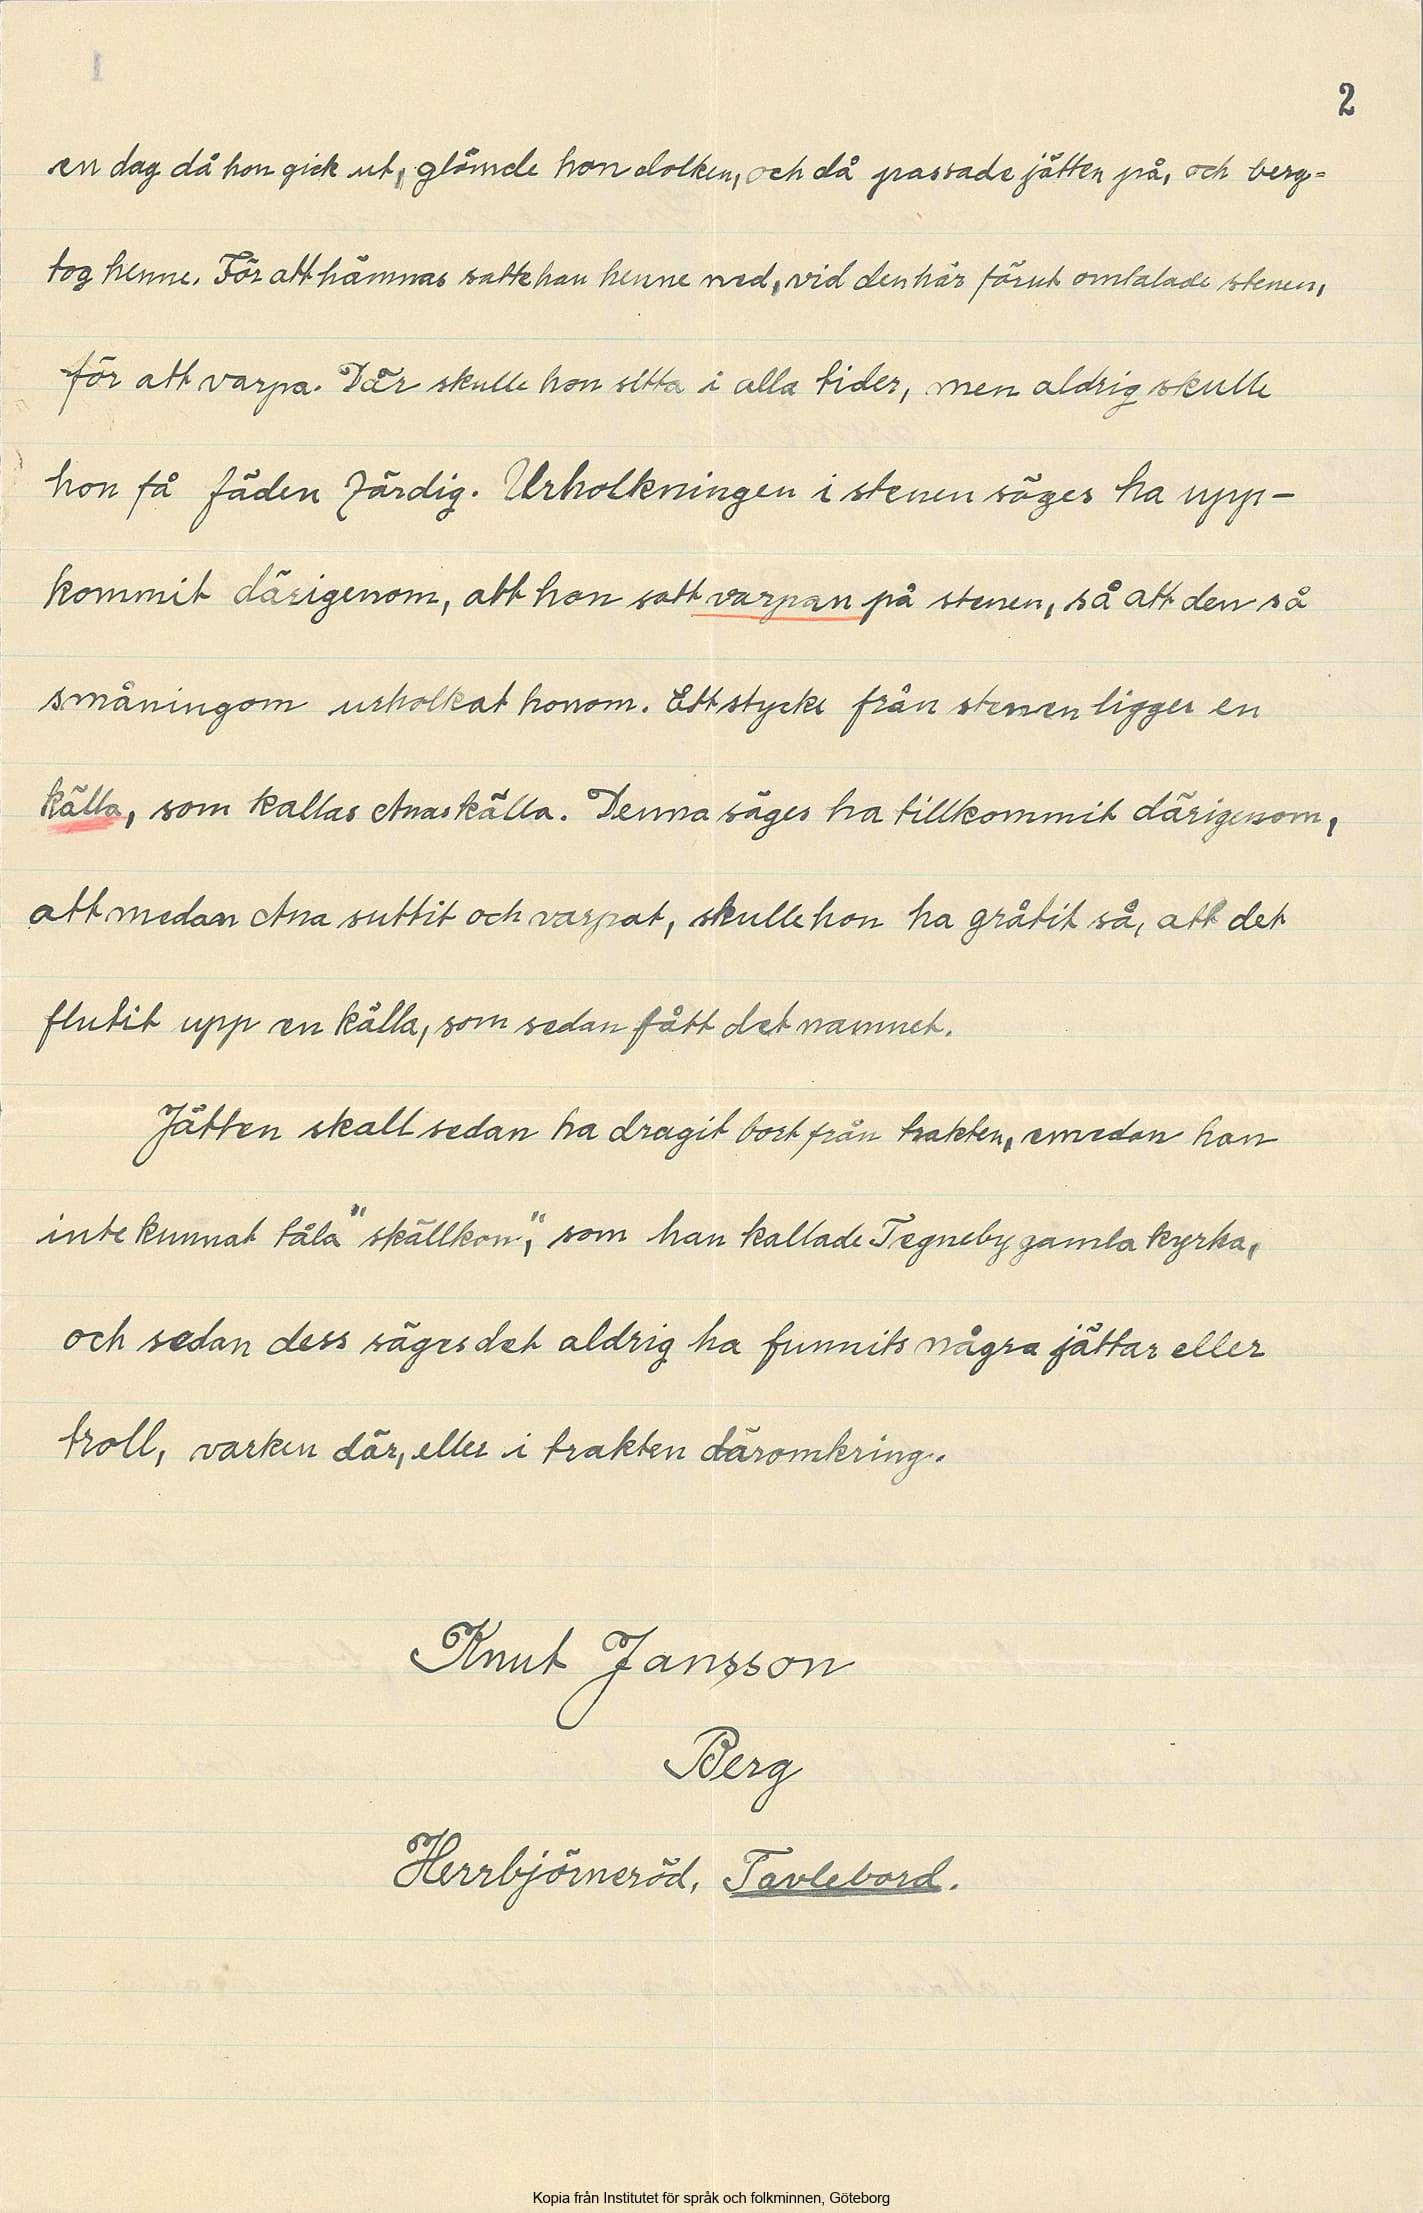 2
en dag då hon gick ut, glömde hon dolken, och då passade jätten på, och berg=
tog henne. För att hämnas satte han henne ned, vid den här förut omtalade stenen,
för att varpa. Där skulle hon sitta i alla tider, men aldrig skulle
hon få fäden färdig. Urholkningen i stenen säges ha upp-
kommit därigenom, att hon satt varpan på stenen, så att den så
småningom urholkat honom. Ett stycke från stenen ligger en
källa, som kallas Anaskälla. Denna säges ha tillkommit därigenom,
att medan Ana suttit och varpat, skulle hon ha gråtit så, att det
flutit upp en källa, som sedan fått det namnet.
Jätten skall sedan ha dragit bort från trakten, emedan han
inte kunnat tåla "skällkon", som han kallade Tegneby gamla kyrka,
och sedan dess säges det aldrig ha funnits några jättar eller
troll, varken där, eller i trakten däromkring.
Knut Jansson
Berg
Herrbjörneröd, Tavlebord.
Kopia från Institutet för språk och folkminnen, Göteborg